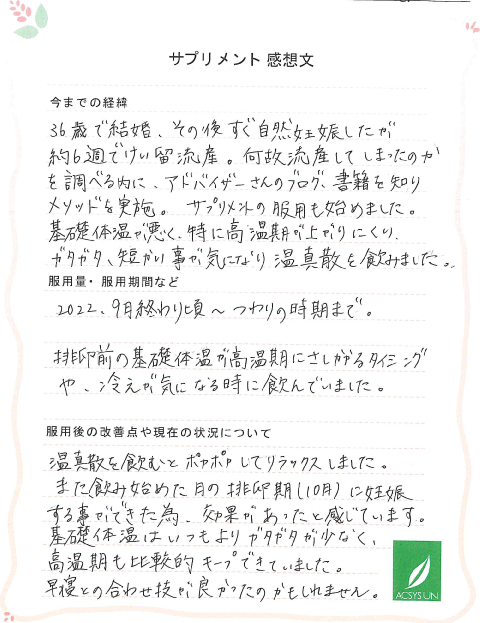 サプリメント 感想文
今までの経緯
36歳で結婚、その後すぐ自然妊娠したが
約6週でけい留流産。何故流産してしまったのか
を調べる内に、アドバイザーさんのブログ、書籍を知り
メソッドを実施。 サプリメントの服用も始めました。
基礎体温が悪く、特に高温期が上がりにくい、
ガタガタ、短かい事が気になり温真散を飲みました。
服用量・服用期間など
2022、9月終わり頃～つわりの時期まで。
排卵前の基礎体温が高温期にさしかかるタイミング
や、冷えが気になる時に飲んでいました。
服用後の改善点や現在の状況について
温真散を飲むとポカポカしてリラックスしました。
また飲み始めた月の排卵期(10月)に妊娠
する事ができた為、効果があったと感じています。
基礎体温はいつもよりガタガタが少なく、
高温期も比較的キープできていました。
早寝との合わせ技が良かったのかもしれません。
ACSYSUN